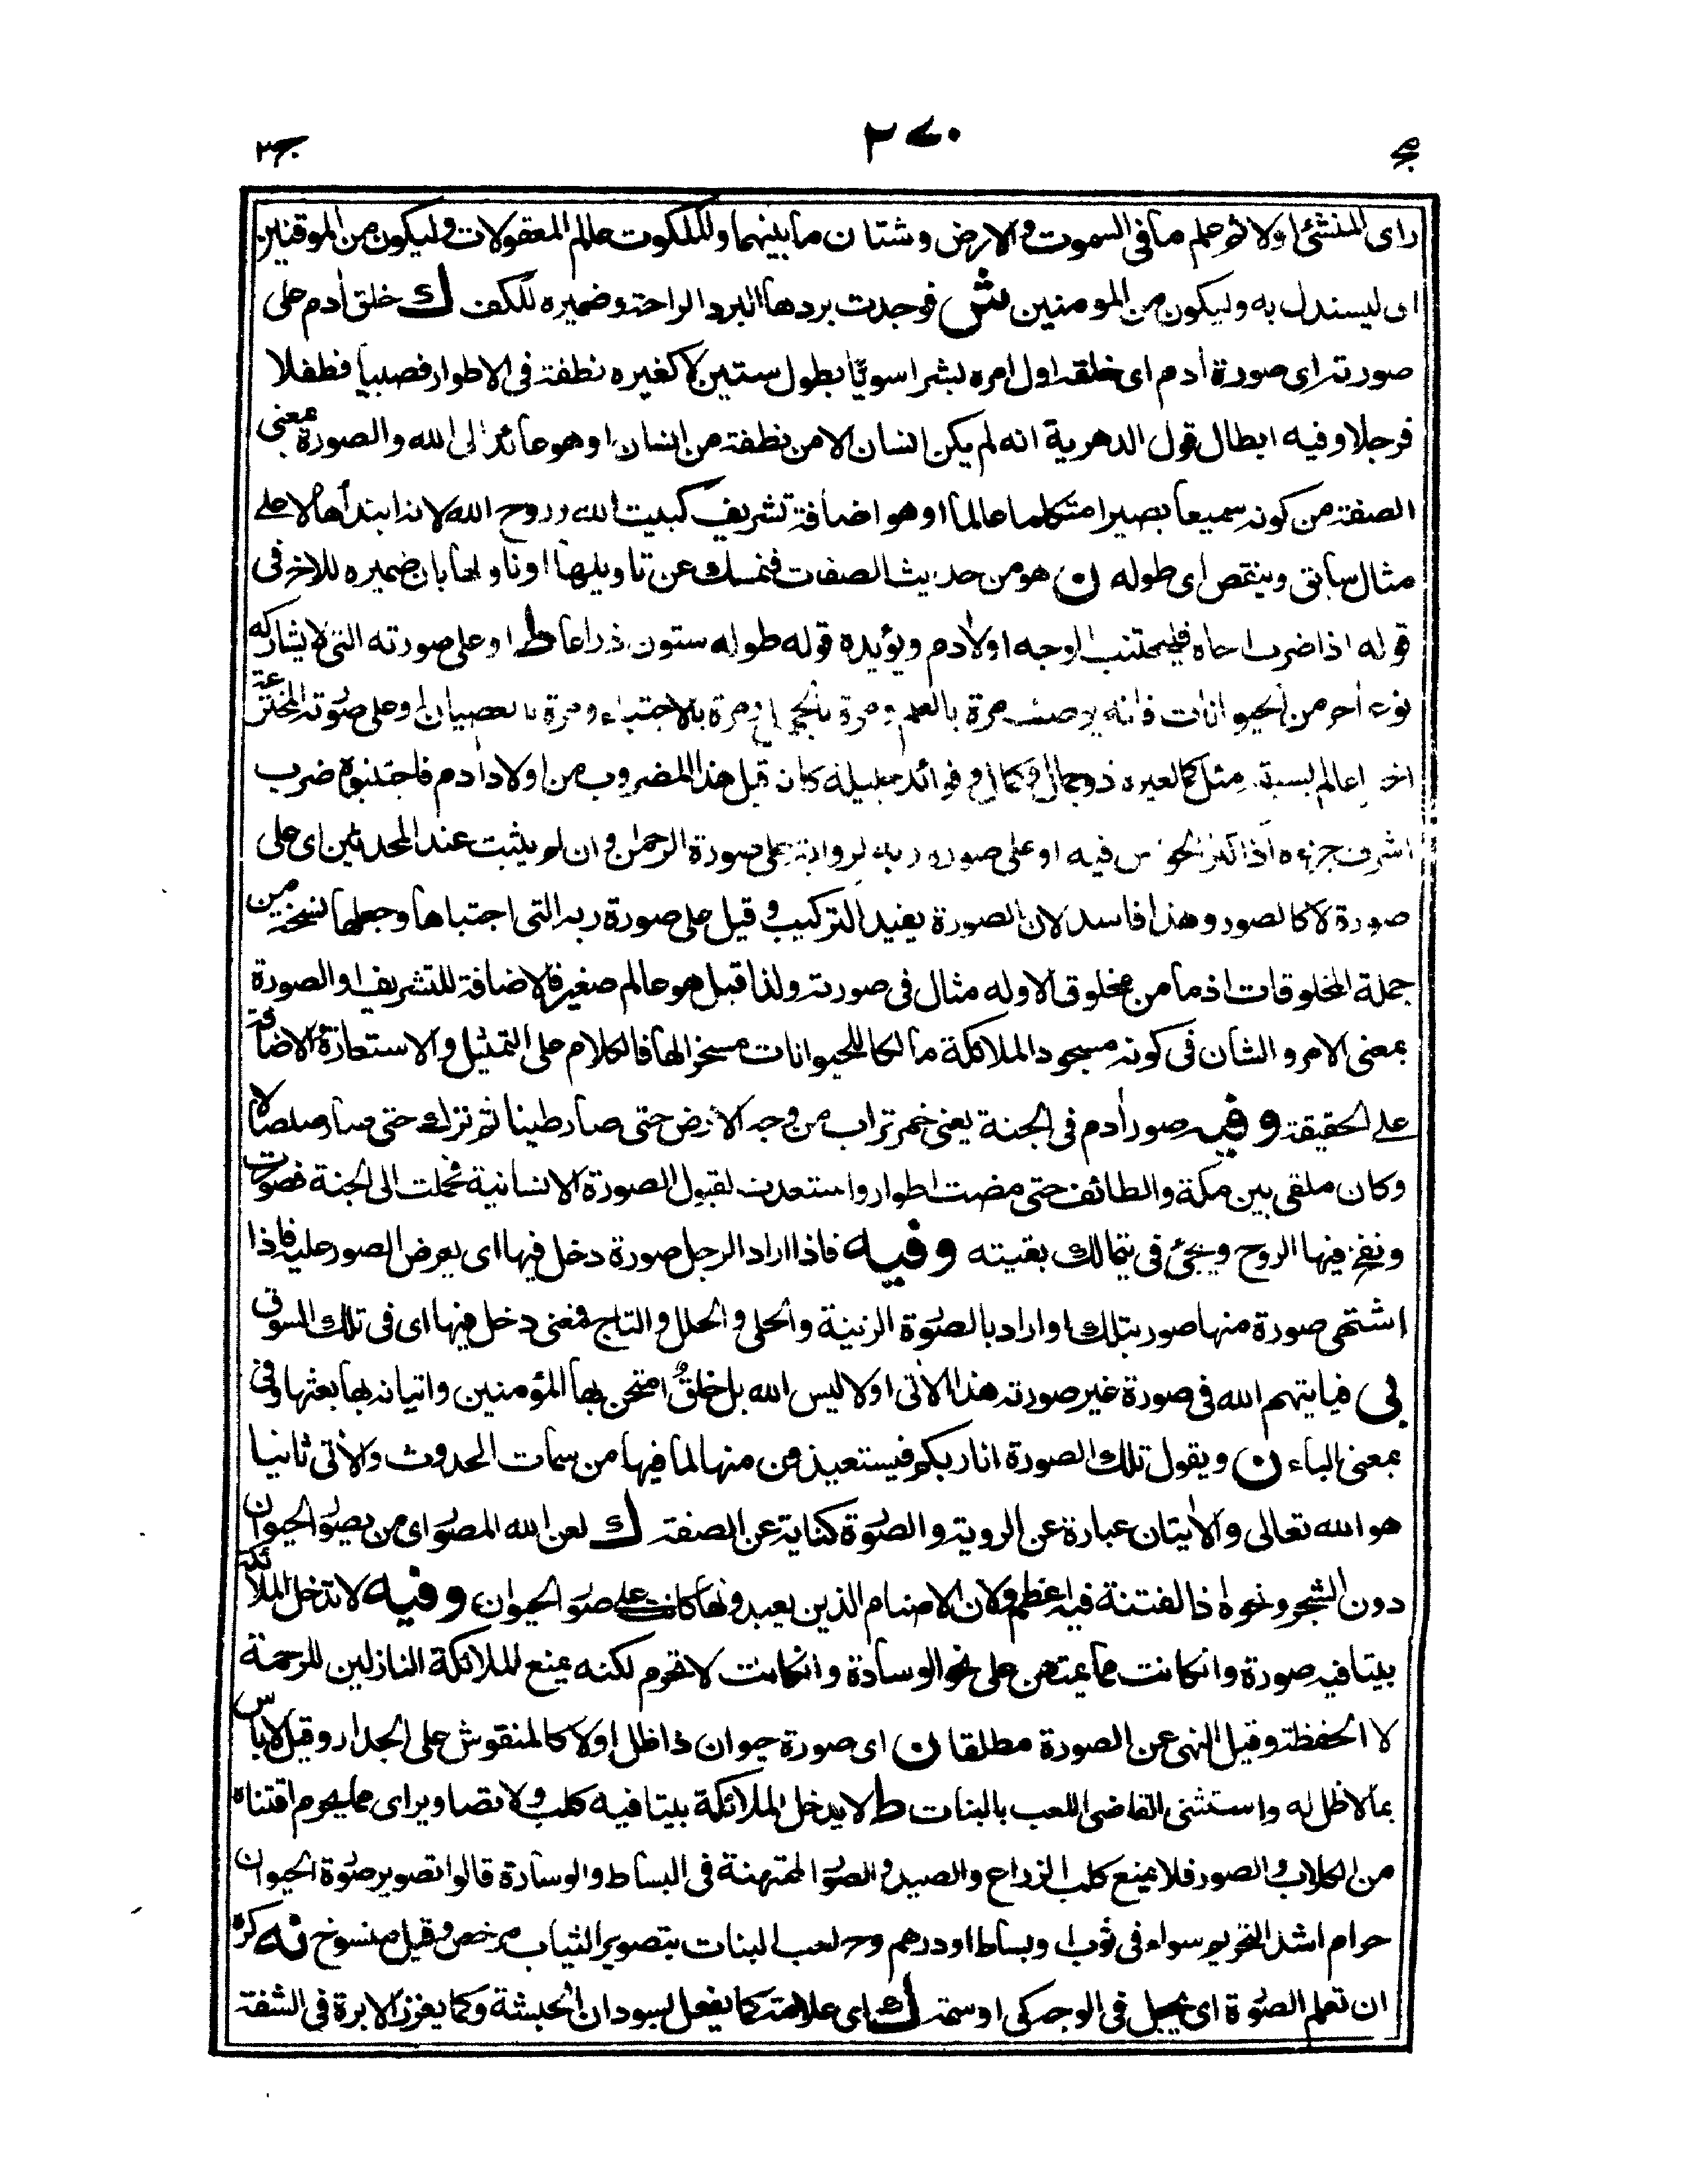 ٢٧٠
راى المنشئ اولا ثم علم ما فى السموت والارض وشتان ما بينهما والملكوت عالم المعقولات وليكون من الموقنين
اى ليستدل به وليكون من المومنين ش فوجدت بردها البرد الراحة وضميره للكف ك خلق أدم على
صورته اى صورة أدم اى خلقه اول امره بشرا سويا بطول ستين لا كغيره نطفة فى الاطوار فصبيا فطفلا
فرجلا وفيه ابطال قول الدهرية انه لم يكن انسان الا من نطفة من انسان او هو عائد الى الله والصورة بمعنى
الصفة من كونه سميعا بصيرا متكلما عالما او هو اضافة تشريف كبيت الله وروح الله لانه ابتدأها لا على
مثال سابق وينقص اى طوله ن هو من حديث الصفات فنمسك عن تاويلها او ناولها بان ضميره للاخ فى
قوله اذا ضرب احاه فليجتنب الوجه او لأدم ويؤيده قوله طوله ستون ذراعا ط او على صورته التى لا يشاركه
نوع أخر من الحيوانات فانه يوصف مرة بالعلم ومرة بالاجتباء ومرة بالعصيان او على صورته المخترعة
مثل كما لغيره ذو جمال وكمال وفوائد جليلة كان قبل هذا المضروب من اولاد أدم فاجتنبوه ضرب
اشرف جزءه اذ اكثر الحواس فيه او على صورة ربه لرواية على صورة الرحمن وان لم يثبت عند المحدثين اى على
صورة لا كالصور وهذا فاسد لان الصورة يفيد التركيب وقيل على صورة ربه التى اجتباها وجعلها نسخة من
جملة المخلوقات اذ ما من مخلوق الا وله مثال فى صورته ولذا قيل هو عالم صغير فالاضافة للتشريف او الصورة
بمعنى الامر والشان فى كونه مسجود الملائكة مالكا للحيوانات مسخرا لها فالكلام على التمثيل والاستعارة والاضافة
على الحقيقة وفيه صور أدم فى الجنة يعنى خمر تراب من وجه الارض حتى صار طينا ثم ترك حتى صار صلصالا
وكان ملقى بين مكة والطائف حتى مضت اطوار واستعدت لقبول الصورة الانسانية فحملت الى الجنة فصورت
ونفخ فيها الروح ويجئ فى يتمالك بقيته وفيه فاذا اراد الرجل صورة دخل فيها اى يعرض الصور عليه فاذا
اشتهى صورة منها صور بتلك او اراد بالصورة الزينة والحلى والحلل والتاج فمعنى دخل فيها اى فى تلك السوق
بى فيايتهم الله فى صورة غير صورته هذا الأتى اولا ليس الله بل خلق امتحن بها المؤمنين واتيانه بها بعثها وفى
بمعنى الباء ن ويقول تلك الصورة انا ربكم فيستعيذ من منها لما فيها من سمات الحدوث والأتى ثانيا
هو الله تعالى والايتان عبارة عن الروية والصورة كناية عن الصفة ك لعن الله المصور اى من يصور الحيوان
دون الشجر ونحوه اذ الفتنة فيه اعظم ولان الاصنام الذين يعبدونها كانت على صور الحيوان وفيه لا تدخل الملائكة
بيتا فيه صورة وان كانت مما يمتهن على نحو الوسادة وان كانت لا تحرم لكنه يمنع الملائكة النازلين للرحمة
لا الحفظة وقيل النهى عن الصورة مطلقا ن اى صورة حيوان ذا ظل او لا كالمنقوش على الجدار وقيل لا باس
بما لا ظل له واستثنى القاضى اللعب بالبنات ط لا يدخل الملائكة بيتا فيه كلب ولا تصاوير اى مما يحرم اقتناه
من الكلاب والصور فلا يمنع كلب الزراع والصيد والصور الممتهنة فى البساط والوسادة قالوا تصوير صورة الحيوان
حرام اشد التحريم سواء فى ثوب او بساط او درهم وح لعب البنات بتصوير الثياب مرخص وقيل منسوخ نه كره
ان تعلم الصورة اى يجعل فى الوجه كى او سمة ك اى علامة كما يفعل بسودان الحبشة وكما يغرز الابرة فى الشفة